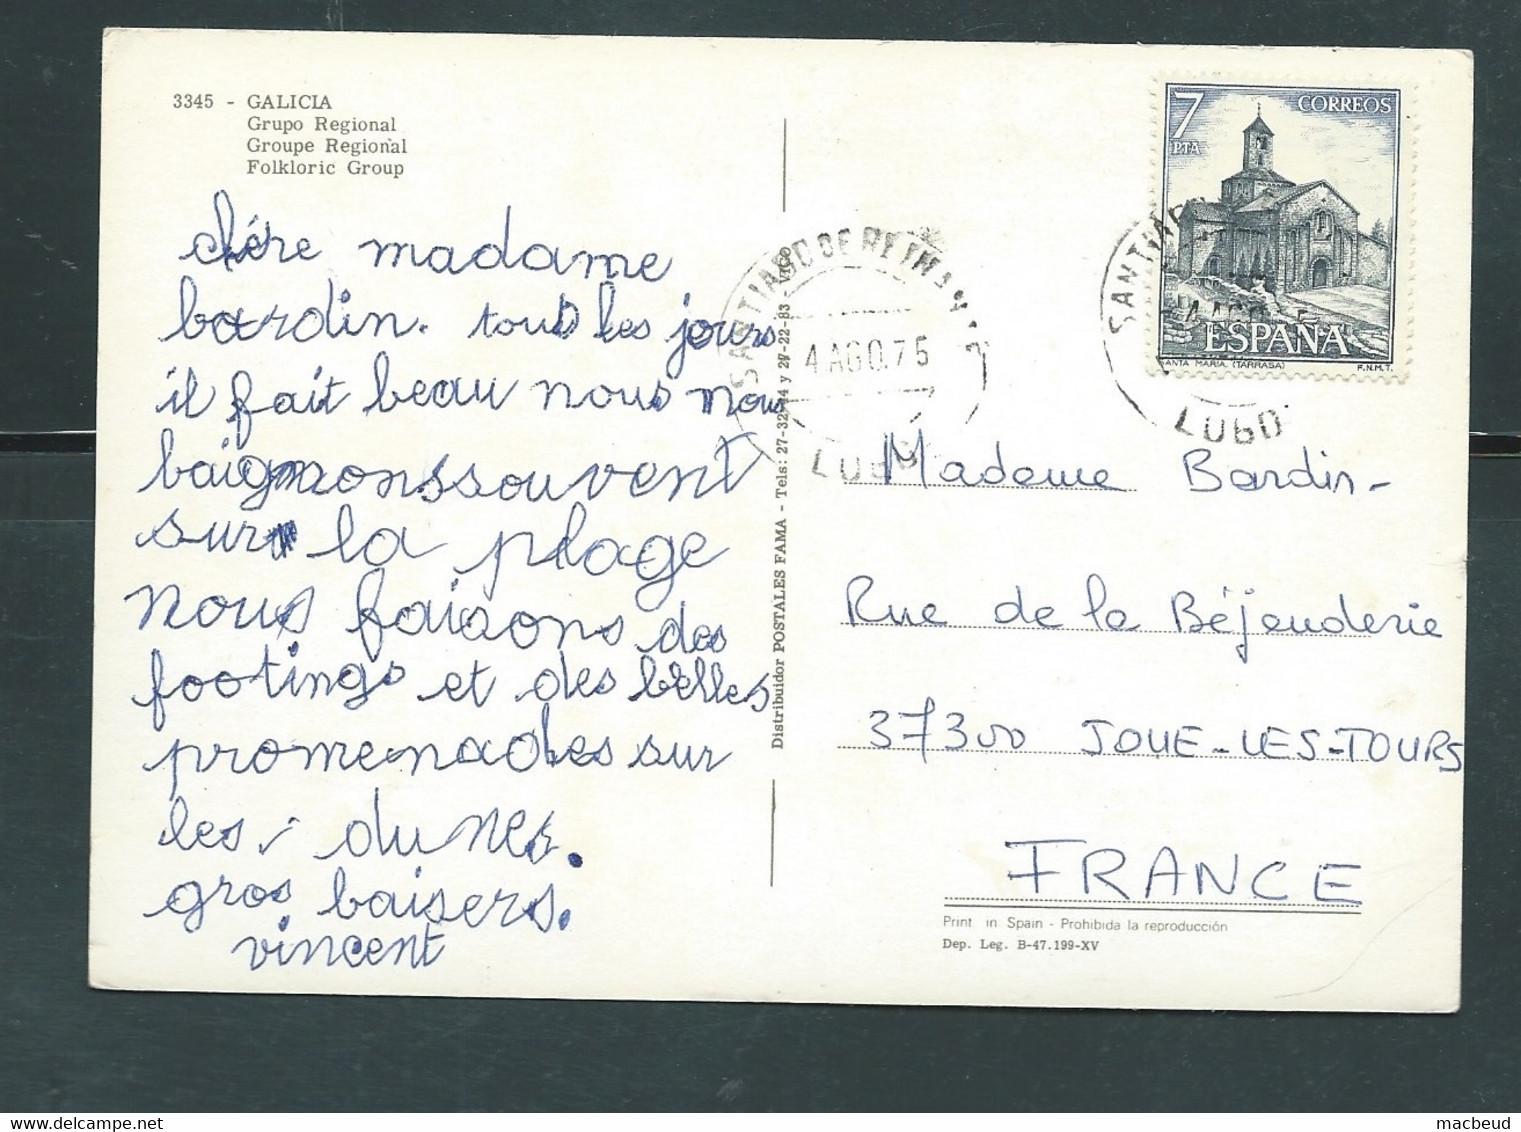 3345 - GALICIA
Grupo Regional
Groupe Regional
Folkloric Group
chére madame
bardin. tout les jours
il fait beau nous nous
baignons souvent
sur la plage
nous faisons des
footings et des belles
promenades sur
les dunes.
gros baisers.
vincent
Distribuidor POSTALES FAMA - Tels: 27-32-44 y 27-22-83 -
4 AGO. 75
LUGO
7
PTA
CORREOS
ESPAÑA
SANTA MARIA (TARRASA) F.N.M.T.
LUGO
Madame Bardin-
Rue de la Béjenderie
37300 JOUE-LES-TOURS
FRANCE
Print in Spain - Prohibida la reproducción
Dep. Leg. B-47.199-XV
macbeud